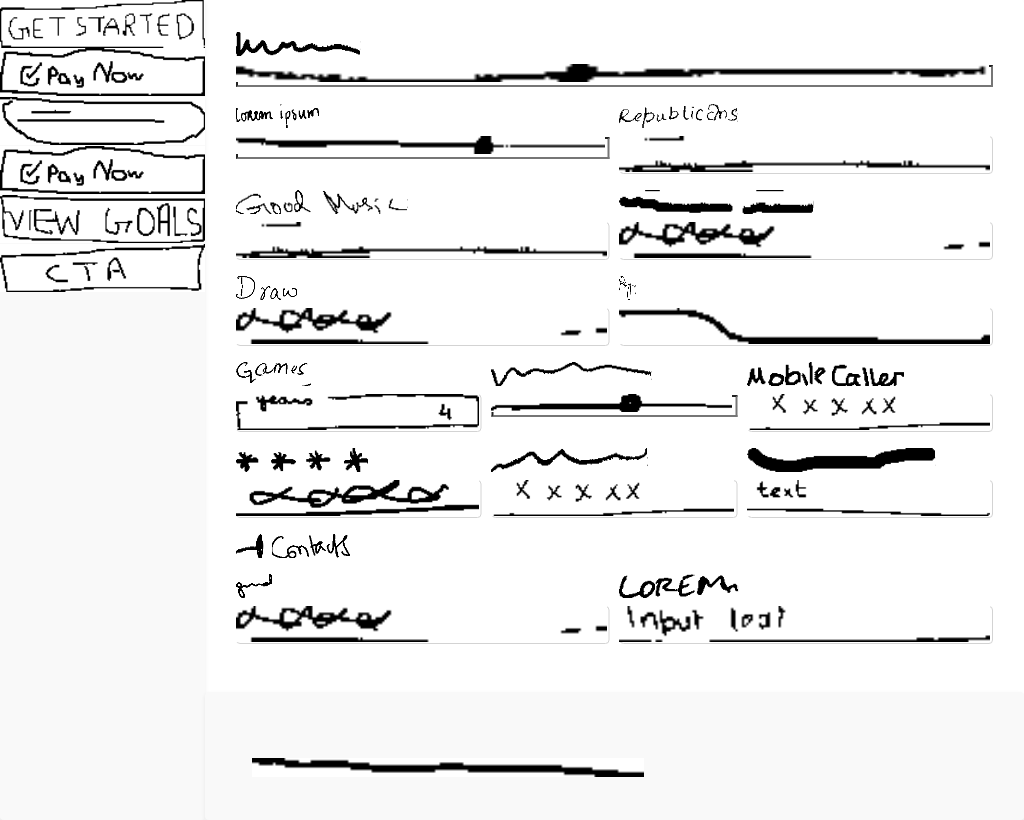 GET STARTED
Pay Now
Pay Now
VIEW GOALS
CTA
lorem ipsum
Republicans
Good Music
Draw
Games
years
4
Mobile Caller
X X X X X
* * * *
X X X X X
text
Contacts
LOREM
Input